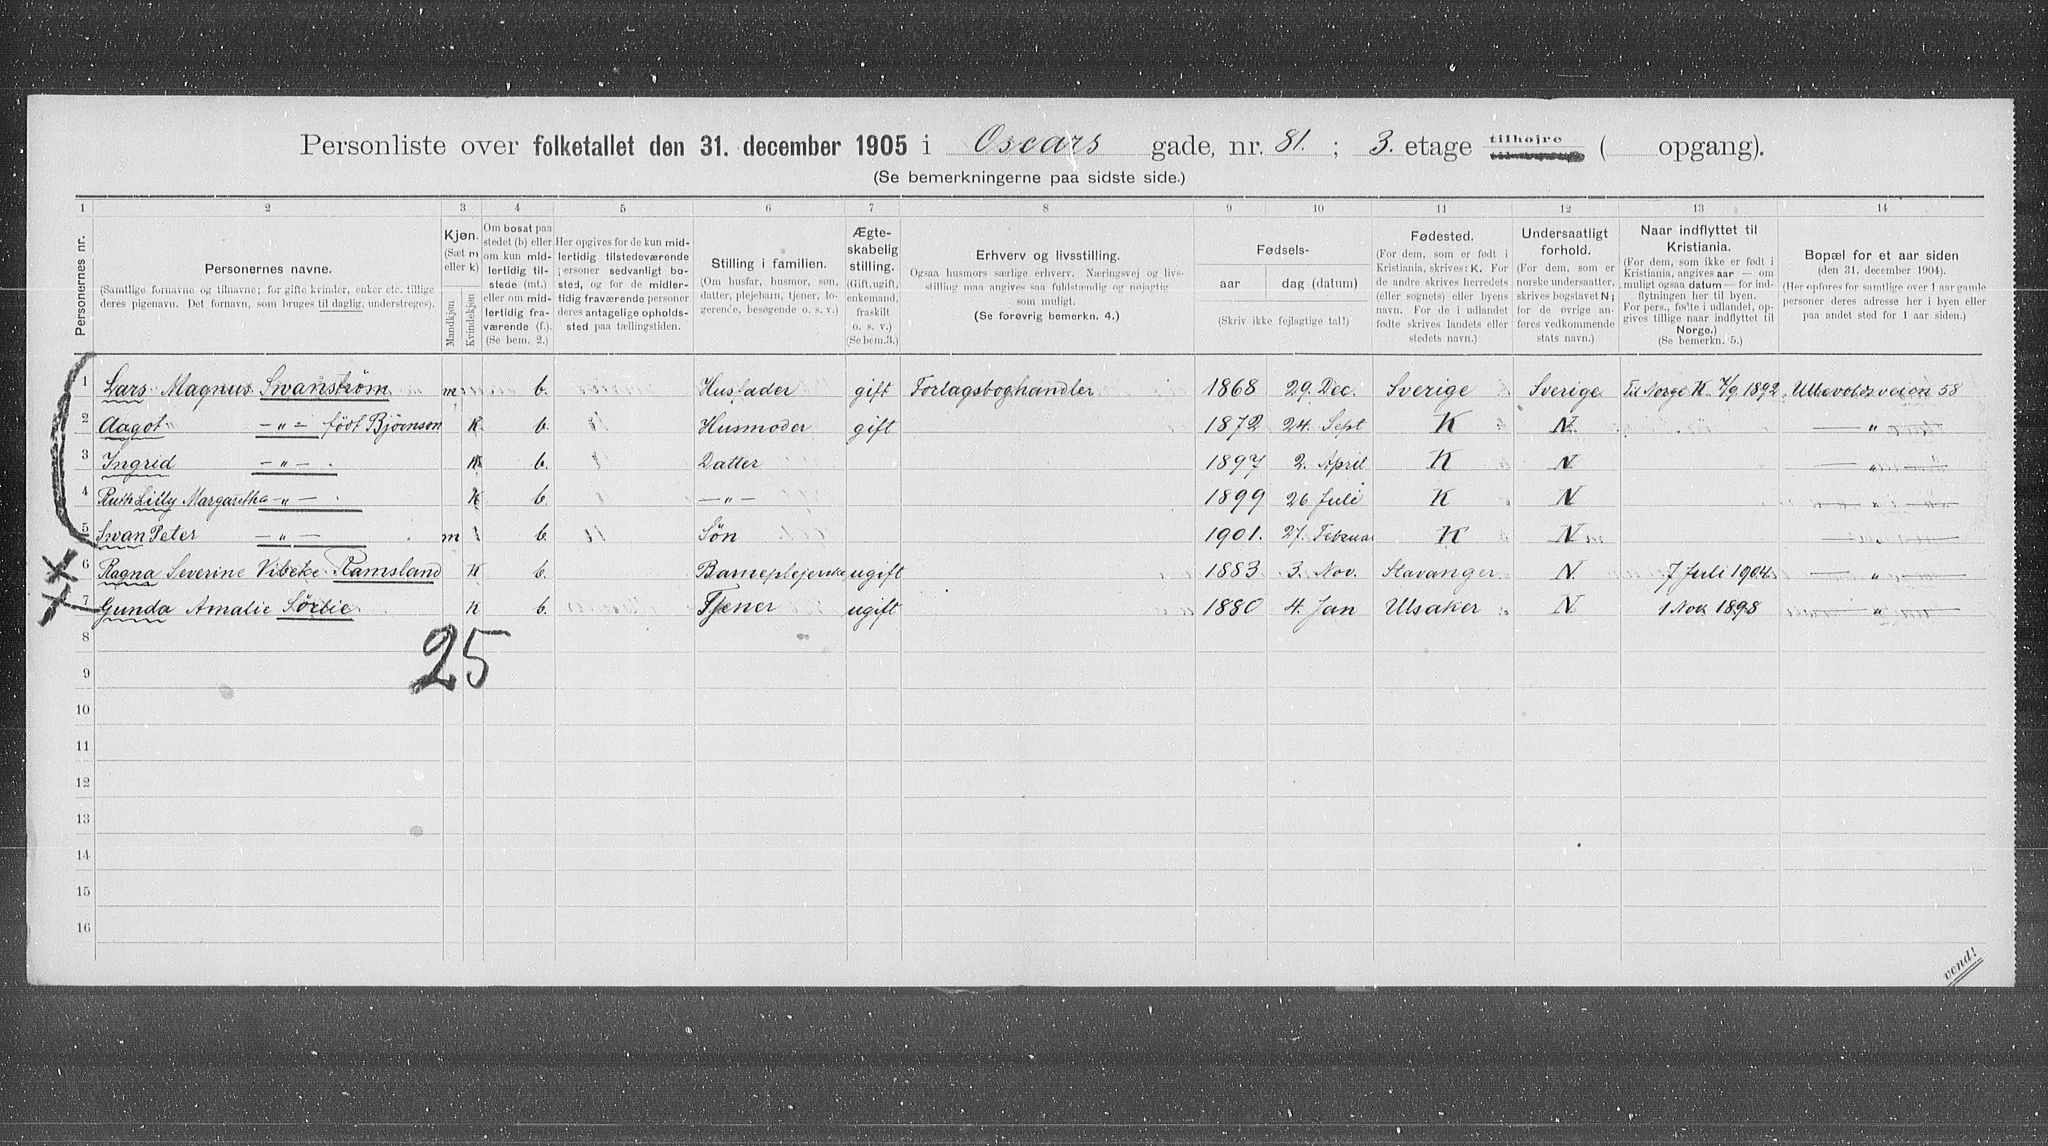 Personliste over folketallet den 31. december 1905 i Oscars gade, nr. 81. ; 3. etage tilhøjre ( opgang).
(Se bemerkningerne paa sidste side.)
1 2 3 4 5 6 7 8 9 10 11 12 13 14
Personernes nr.
Personernes navne.
(Samtlige fornavne og tilnavne; for gifte kvinder, enker etc. tillige deres pigenavn. Det fornavn, som bruges til daglig, understreges).
Kjøn.
(Sæt m eller k)
Mandkjøn
Kvindekjøn
Om bosat paa stedet (b) eller om kun midlertidig tilstede (mt.) eller om midlertidig fraværende (f.). (Se bem. 2.)
Her opgives for de kun midlertidig tilstedeværende personer sedvanligt bosted, og for de midlertidig fraværende personer deres antagelige opholdssted paa tællingstiden.
Stilling i familien.
(Om husfar, husmor, søn, datter, plejebarn, tjener, logerende, besøgende o. s. v.)
Ægteskabelig stilling.
(Gift, ugift, enkemand, fraskilt o. s. v.)
(Se bem. 3.)
Erhverv og livsstilling.
Ogsaa husmors særlige erhverv. Næringsvej og livsstilling maa angives saa fuldstændig og nøjagtig som muligt.
(Se forøvrig bemerkn. 4.)
Fødsels-
aar
dag (datum)
(Skriv ikke fejlagtige tal!)
Fødested.
(For dem, som er født i Kristiania, skrives: K. For de andre skrives herredets (eller sognets) eller byens navn. For de i udlandet fødte skrives landets eller stedets navn.)
Undersaatligt forhold.
(For dem, som er norske undersaatter, skrives bogstavet N; for de øvrige anføres vedkommende stats navn.)
Naar indflyttet til Kristiania.
(For dem, som ikke er født i Kristiania, angives aar — om muligt ogsaa datum — for indflytningen her til byen. For pers., fødte i udlandet, opgives tillige naar indflyttet til Norge.)
(Se bemerkn. 5.)
Bopæl for et aar siden
(den 31. december 1904).
(Her opføres for samtlige over 1 aar gamle personer deres adresse her i byen eller paa andet sted for 1 aar siden.)
1 Lars Magnus Swanstrøm m b. Husfader gift Forlagsboghandler 1868 29. Dec. Sverige Sverige Til Norge K. 7/9 1892 Ullevolsveien 58
2 Aagot —„— født Bjørnson K. b. Husmoder gift 1872 24. Sept K N —„—
3 Ingrid —„— K b. Datter 1897 2. April K N —„—
4 Ruth Lilly Margaretha —„— K b. —„— 1899 26 Juli K N —„—
5 Swan Peter —„— m b. Søn 1901. 27. Februar K N —„—
6 Ragna Severine Vibeke Ramsland K b. Barneplejerske ugift 1883 3. Nov. Stavanger N. 7 Juli 1904 —„—
7 Gunda Amalie Sørlie K b. Tjener ugift 1880 4. Jan Ulsaker N 1 Nov. 1898 —„—
25
8
9
10
11
12
13
14
15
16
vend!